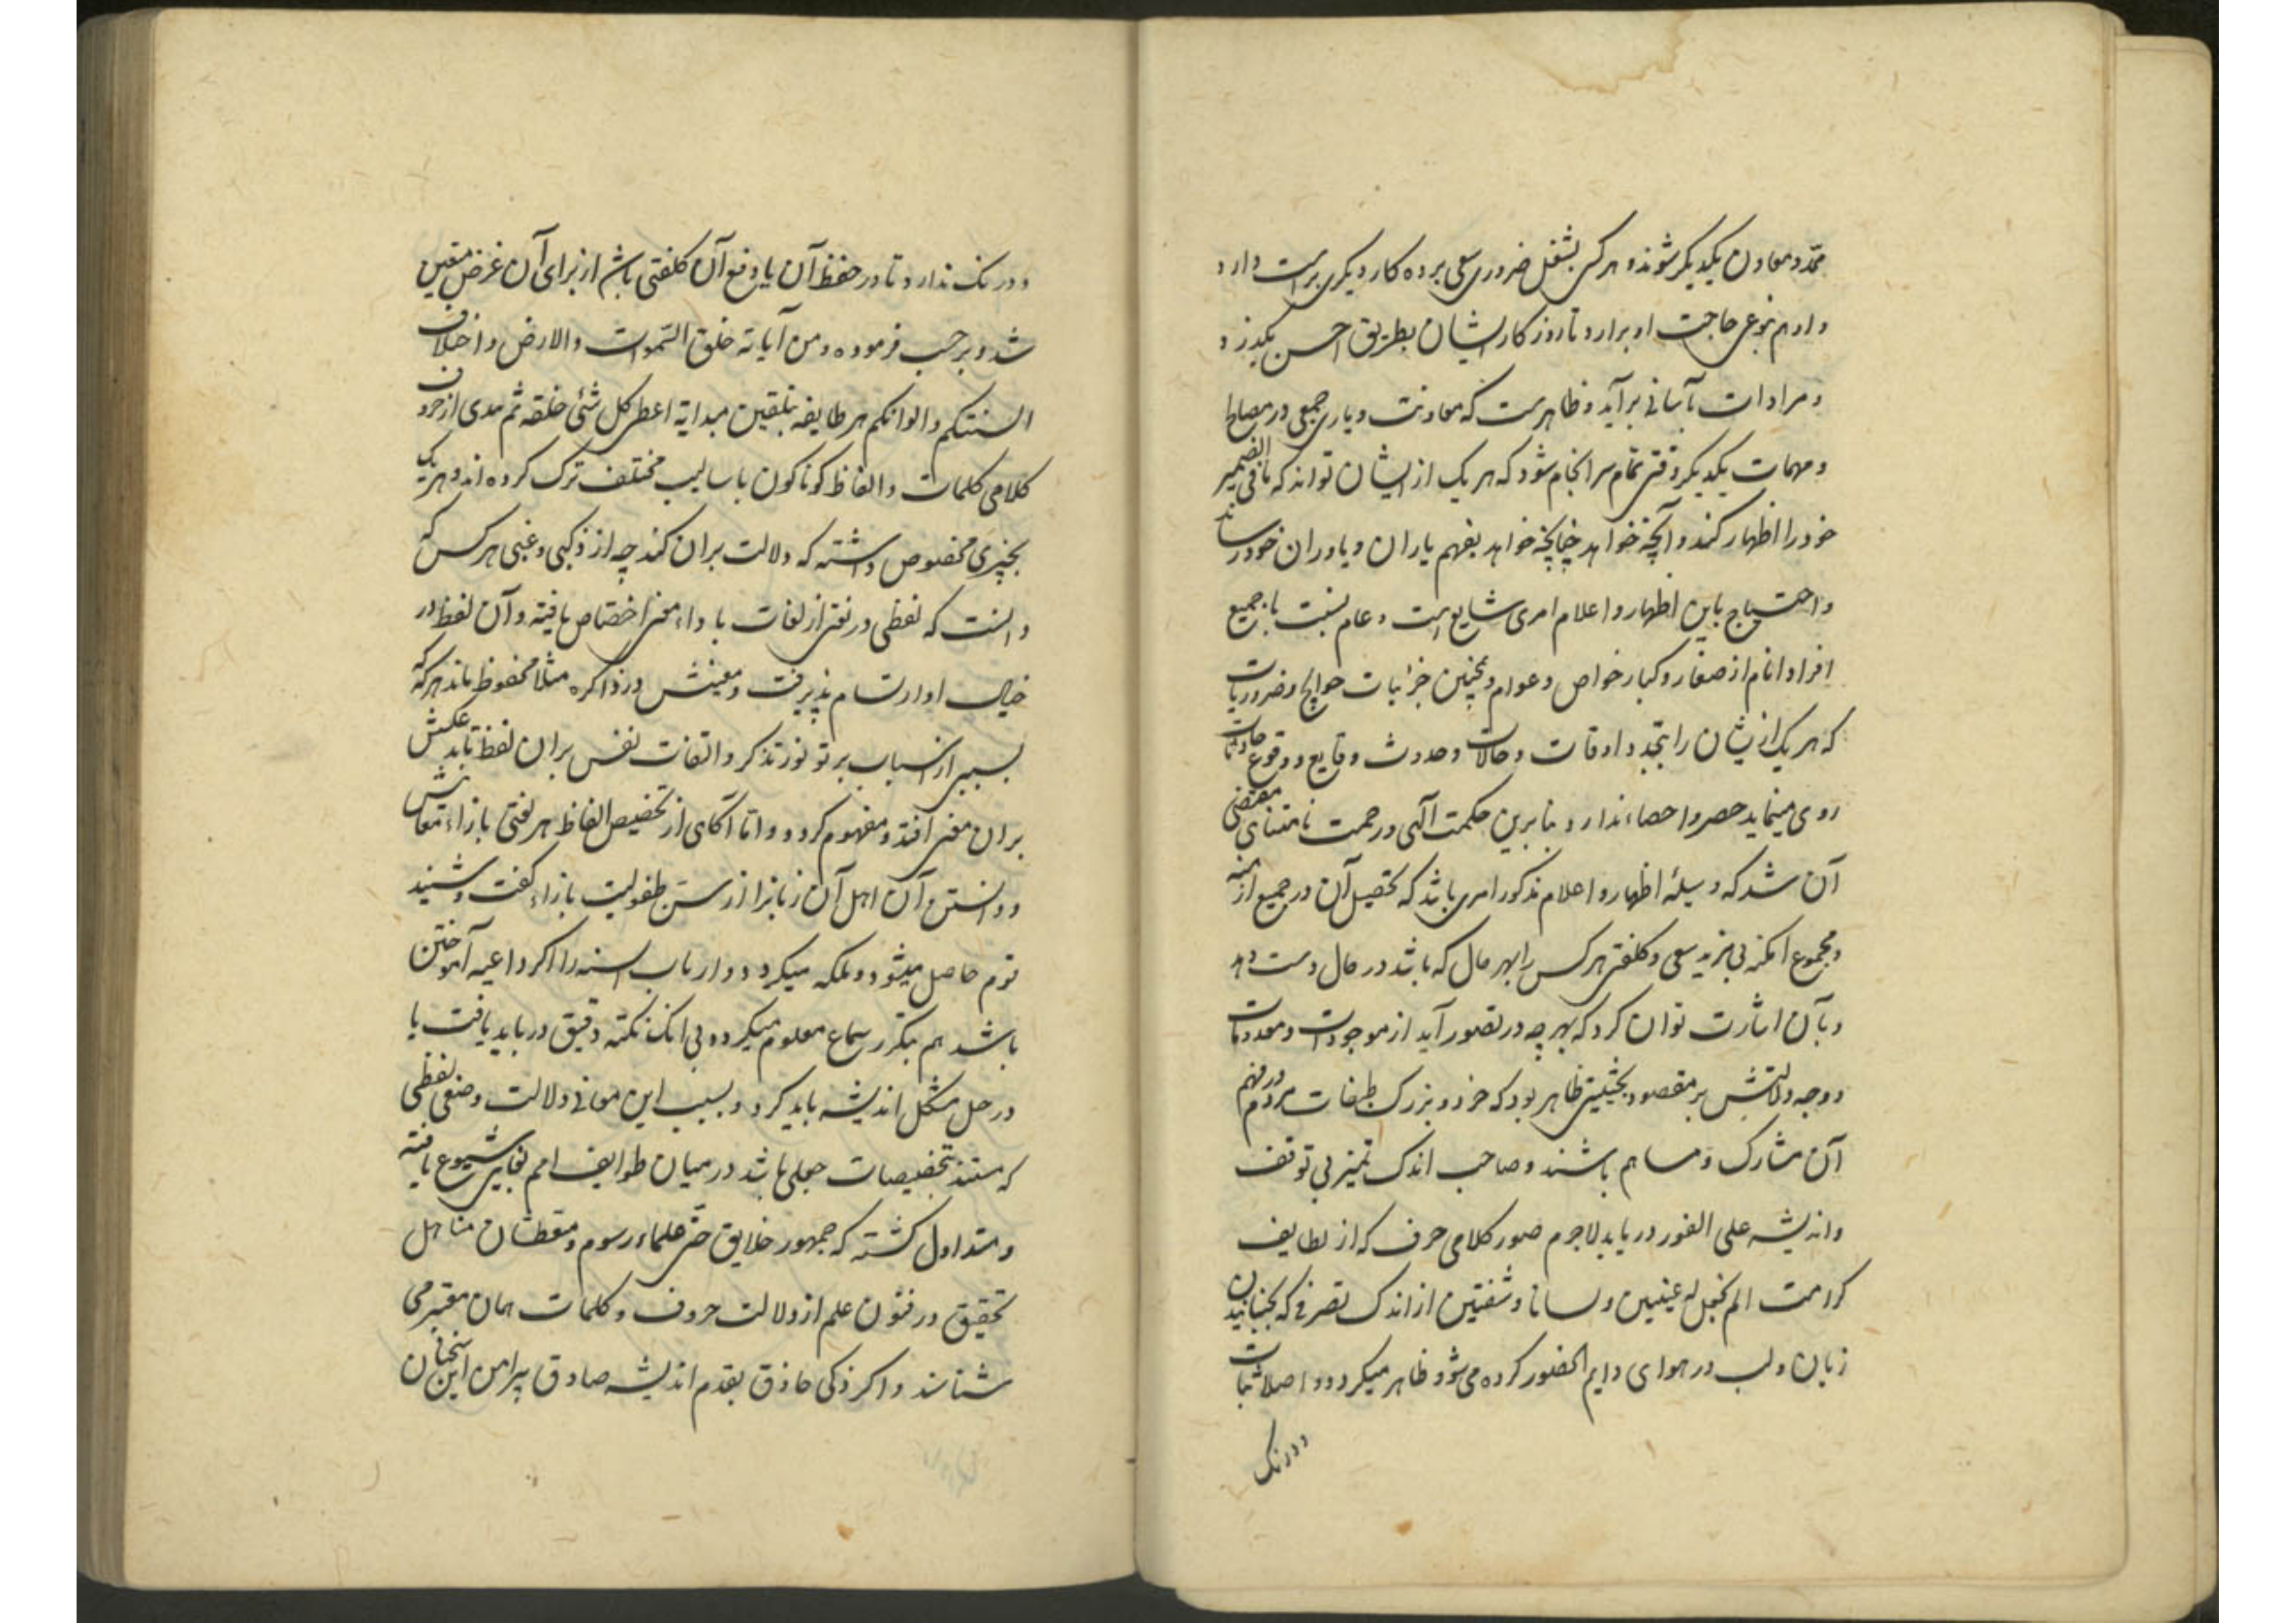 ممد و معاون یکدیگر شوند و هر کس بشغل ضروری سعی برده کار دیگری بدست دارد
و او هم بنوعی حاجت او برارد تا روزکار ایشان بطریق احسن بکذرد
و مرادات بآسانی برآید و ظاهرست که معاونت و یاری جمعی در مصالح
و مهمات یکدیگر وقتی تمام سرانجام شود که هر یک از ایشان تواند که ما فی الضمیر
خود را اظهار کند و آنچه خواهد چنانچه خواهد بفهم یاران و یاوران خود رساند
و احتیاج باین اظهار و اعلام امری شایع است و عام نسبت با جمیع
افراد انام از صغار و کبار خواص و عوام و همچنین جزئیات حوایج و ضروریات
که هر یک از ایشان را بتجدد اوقات و حالات و حدوث وقایع و وقوع حادثات
روی مینماید حصر و احصاء ندارد بنابرین حکمت آلهی و رحمت نامتناهی مقتضی
آن شد که وسیلۀ اظهار و اعلام مذکور امری باشد که تحصیل آن در جمیع ازمنه
و مجموع امکنه بی مزید سعی و کلفتی هر کس را بهر حال که باشد در حال دست دهد
و بآن اشارت توان کرد که بهر چه در تصور آید از موجودات و معدومات
و وجه دلالتش بر مقصود بحیثیتی ظاهر بود که خرد و بزرک طبقات مردم در فهم
آن مشارک و مساهم باشند و صاحب اندک تمیز بی توقف
و اندیشه علی الفور دریابد لاجرم صور کلامی حرف که از لطایف
کرامت الم نجعل له عینین و لسانا و شفتین از اندک تصرفی که بجنبانیدن
زبان و لب در هوای دایم الحضور کرده می شود ظاهر میکردد و اصلا ثبات
و درنک
و درنک ندارد تا در حفظ آن یا دفع آن کلفتی باشد از برای آن غرض متعین
شد و برحسب فرموده و من آیاته خلق السموات والارض و اختلاف
السنتکم و الوانکم هر طایفه بتلقین مبدایۀ اعطی کل شئ خلقه ثم هدی از حروف
کلامی کلمات و الفاظ کوناکون باسالیب مختلف ترک کرده اند و هر یک
بچیزی مخصوص داشته که دلالت بران کند چه از ذکی و غبی هر کس که
دانست که لفظی در لغتی از لغات با داء معنی اختصاص یافته و آن لفظ در
خیال او ارتسام پذیرفت و معنیش در ذاکره مثلا محفوظ ماند هرکه
بسببی از اسباب پرتو نور تذکر و التفات نفس بران لفظ تابد عکسش
بران معنی افتد و مفهوم کردد و اما آکاهی از تخصیص الفاظ هر لغتی بازاء معانیش
و دانستن آن اهل آن زبانرا از سن طفولیت بازاء کفت و شنید
قوم حاصل میشود و ملکه میکردد و ارباب السنه را اکر داعیه آموختن
باشد هم بتکرر سماع معلوم میکردد بی انک نکته دقیق در باید یافت یا
در حل مشکل اندیشه باید کرد و بسبب این معانی دلالت وضعی لفظی
که مستند بتخصیصات جعلی باشد در میان طوایف امم بغایت شیوع یافته
و متداول کشته که جمهور خلایق حتی علماء رسوم و متعطشان مناهل
تحقیق در فنون علم از دلالت حروف و کلمات همان معتبر می
شناسند و اکر ذکی حاذق بقدم اندیشه صادق پیرامن این سخنان